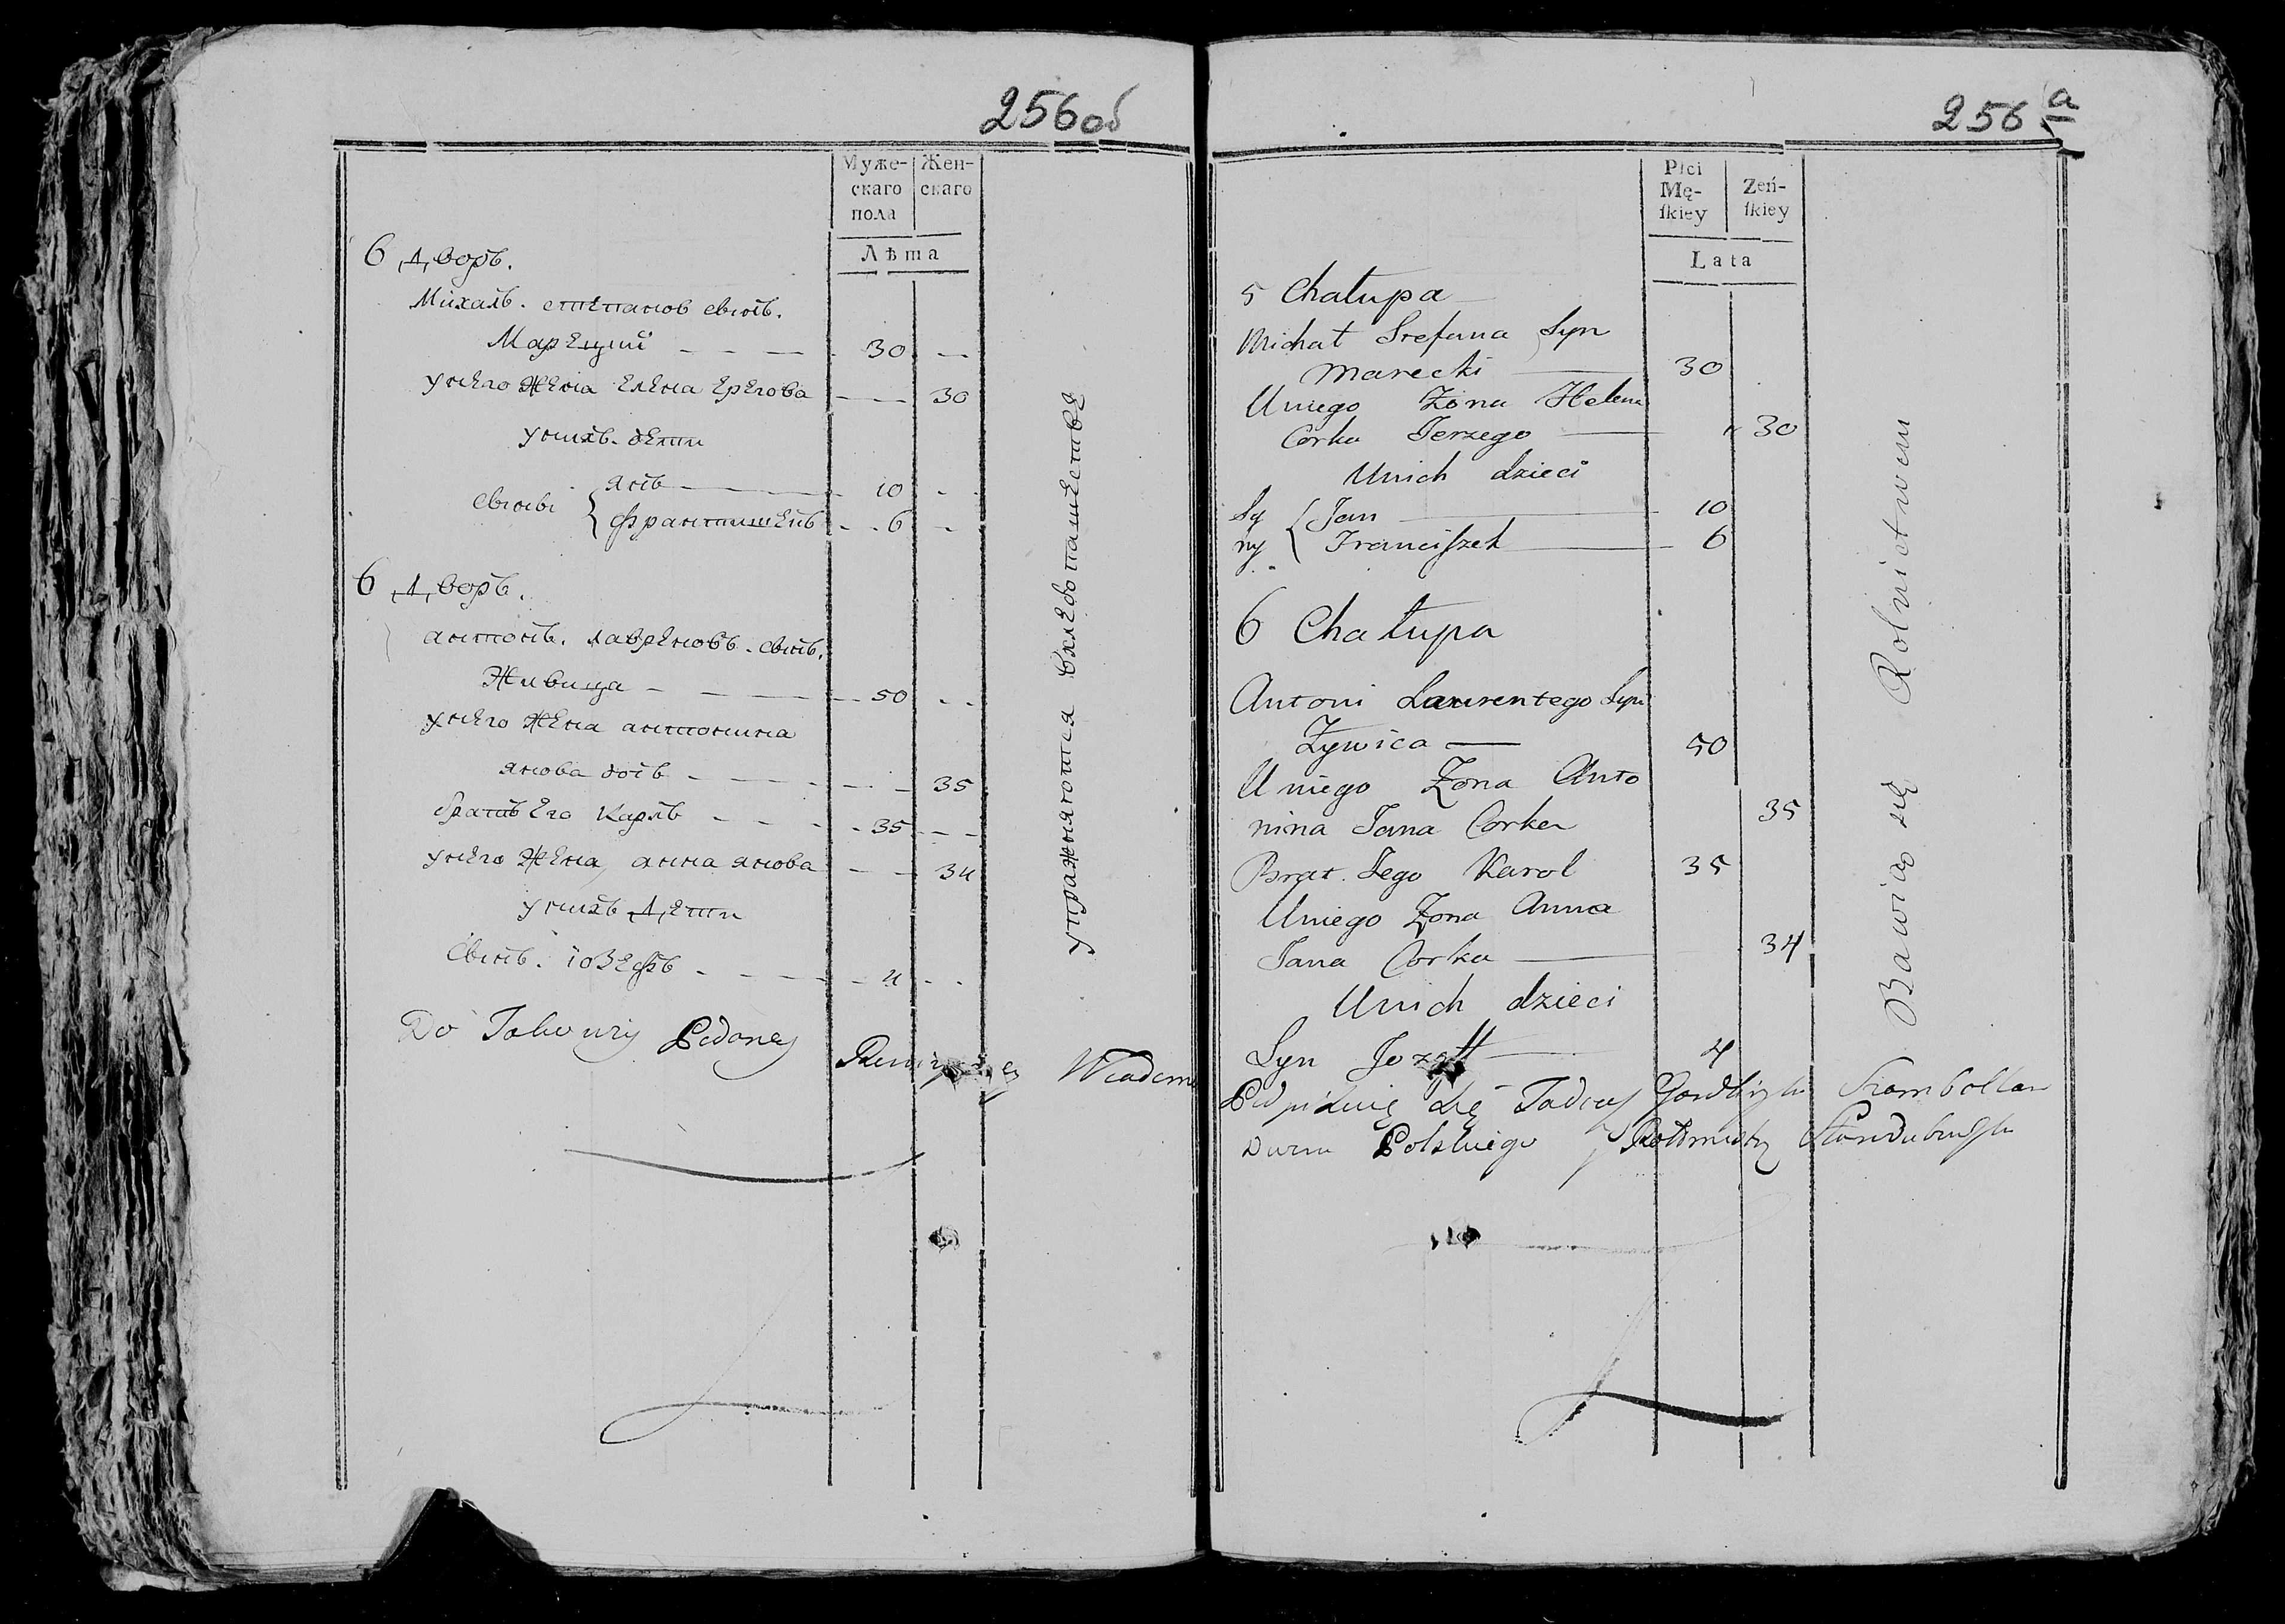 256об
Муже-
скаго
пола
Жен-
скаго
Лѣта
6 дворъ.
Михалъ. степанов сынъ.
Марецкий 30
унего жена елена ерегова 30
унихъ. дети
сыны { янъ 10
францишекъ 6
6 дворъ.
антонъ. лавреновъ. сынъ.
Живица 50
унего жена антонина
янова дочь 35
братъ его каролъ 35
унего жена, анна янова 34
унихъ дети
Сынъ. іозефъ 4
упражняются влебопашестве
Do Takowey Podaney Wiadom
256 a
Płci
Mę-
ſkiey
Zeń-
ſkiey
Lata
5 Chałupa
Michał Stefana Syn
Marecki 30
Uniego Zona Helena
Corka Jerzego 30
Unich dzieci
Sy { Jan 10
ny Franciſzek 6
6 Chałupa
Antoni Laurentego Syn
Zywica 50
Uniego Zona Anto
nina Jana Corka 35
Brat Jego Karol 35
Uniego Zona Anna
Jana Corka 34
Unich dzieci
Syn Jozeff 4
Bawią się Rolnictwem
Podpisuię się Szambellan
Dworu Polskiego y Rotmistrz